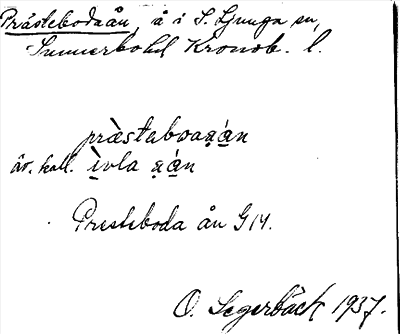 Prästebodaån, å i S. Ljunga sn,
Sunnerbohd Kronob. l.
præ̀stabωaa̤á̤n
äv. kall. ì̤vla a̤á̤n
Presteboda ån G 14.
O. Segerbäck 1937.